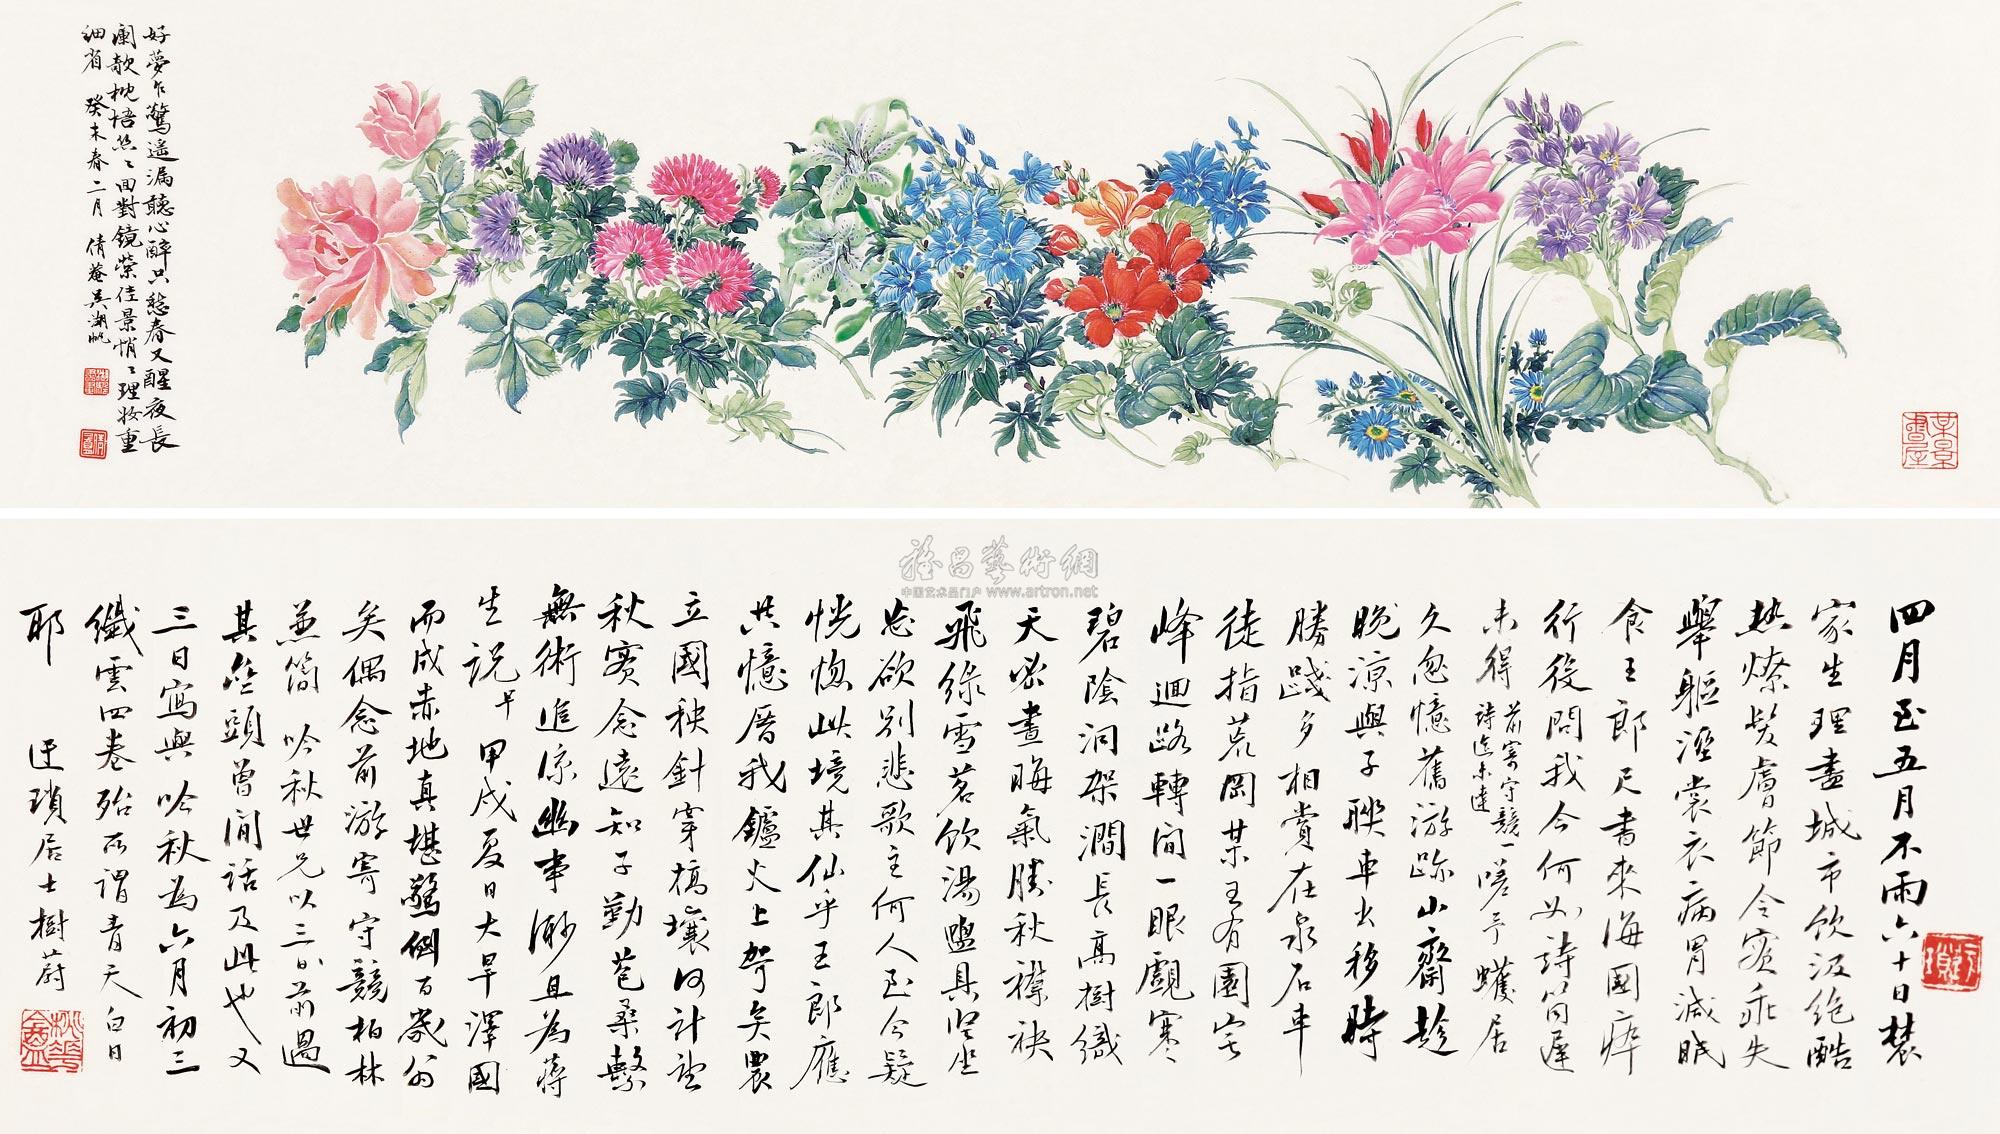 好夢乍驚遙漏聽心醉只愁春又醒夜長
闌欹枕悟悠〻回對鏡縈佳景悄〻理妝重
細省 癸未春二月 倩菴吳湖帆
雅昌藝術網
中国艺术品门户 www.artron.net
四月至五月不雨六十日農
家生理盡城市飲汲絕酷
熱燎髮膚節令寔乖失
舉軀溼裳衣病胃減眠
食王郎尺書來海國瘁
行役問我今何如詩筒遲
未得前寄守競一詩迄未達嗟予蠖居
久忽憶舊游跡山齋趁
晚涼與子聯車出移時
勝踐多相賞在泉石車
徒指荒岡某王有園宅
峰迴路轉間一眼覷寒
碧陰洞架澗長高樹織
天密晝晦氣勝秋襟袂
飛綠雪茗飲湯盥具坐
忘欲別悲歌主何人至今疑
恍惚此境其仙乎王郎應
共憶厝我鑪火上努矣農
立國秧針穿槁壤何計望
秋實念遠知子勤苞桑繫
無術進涼幽事渺且為蒋
生説 甲戌夏日大旱澤國
而成赤地真堪驚倒百歲翁
矣偶念前游寄守競柏林
並簡 吟秋世兄以三日前過
其廬頭曾閒話及此也又
三日寫與吟秋為六月初三
纖雲四卷殆所謂青天白日
耶 迂瑣居士樹蔚